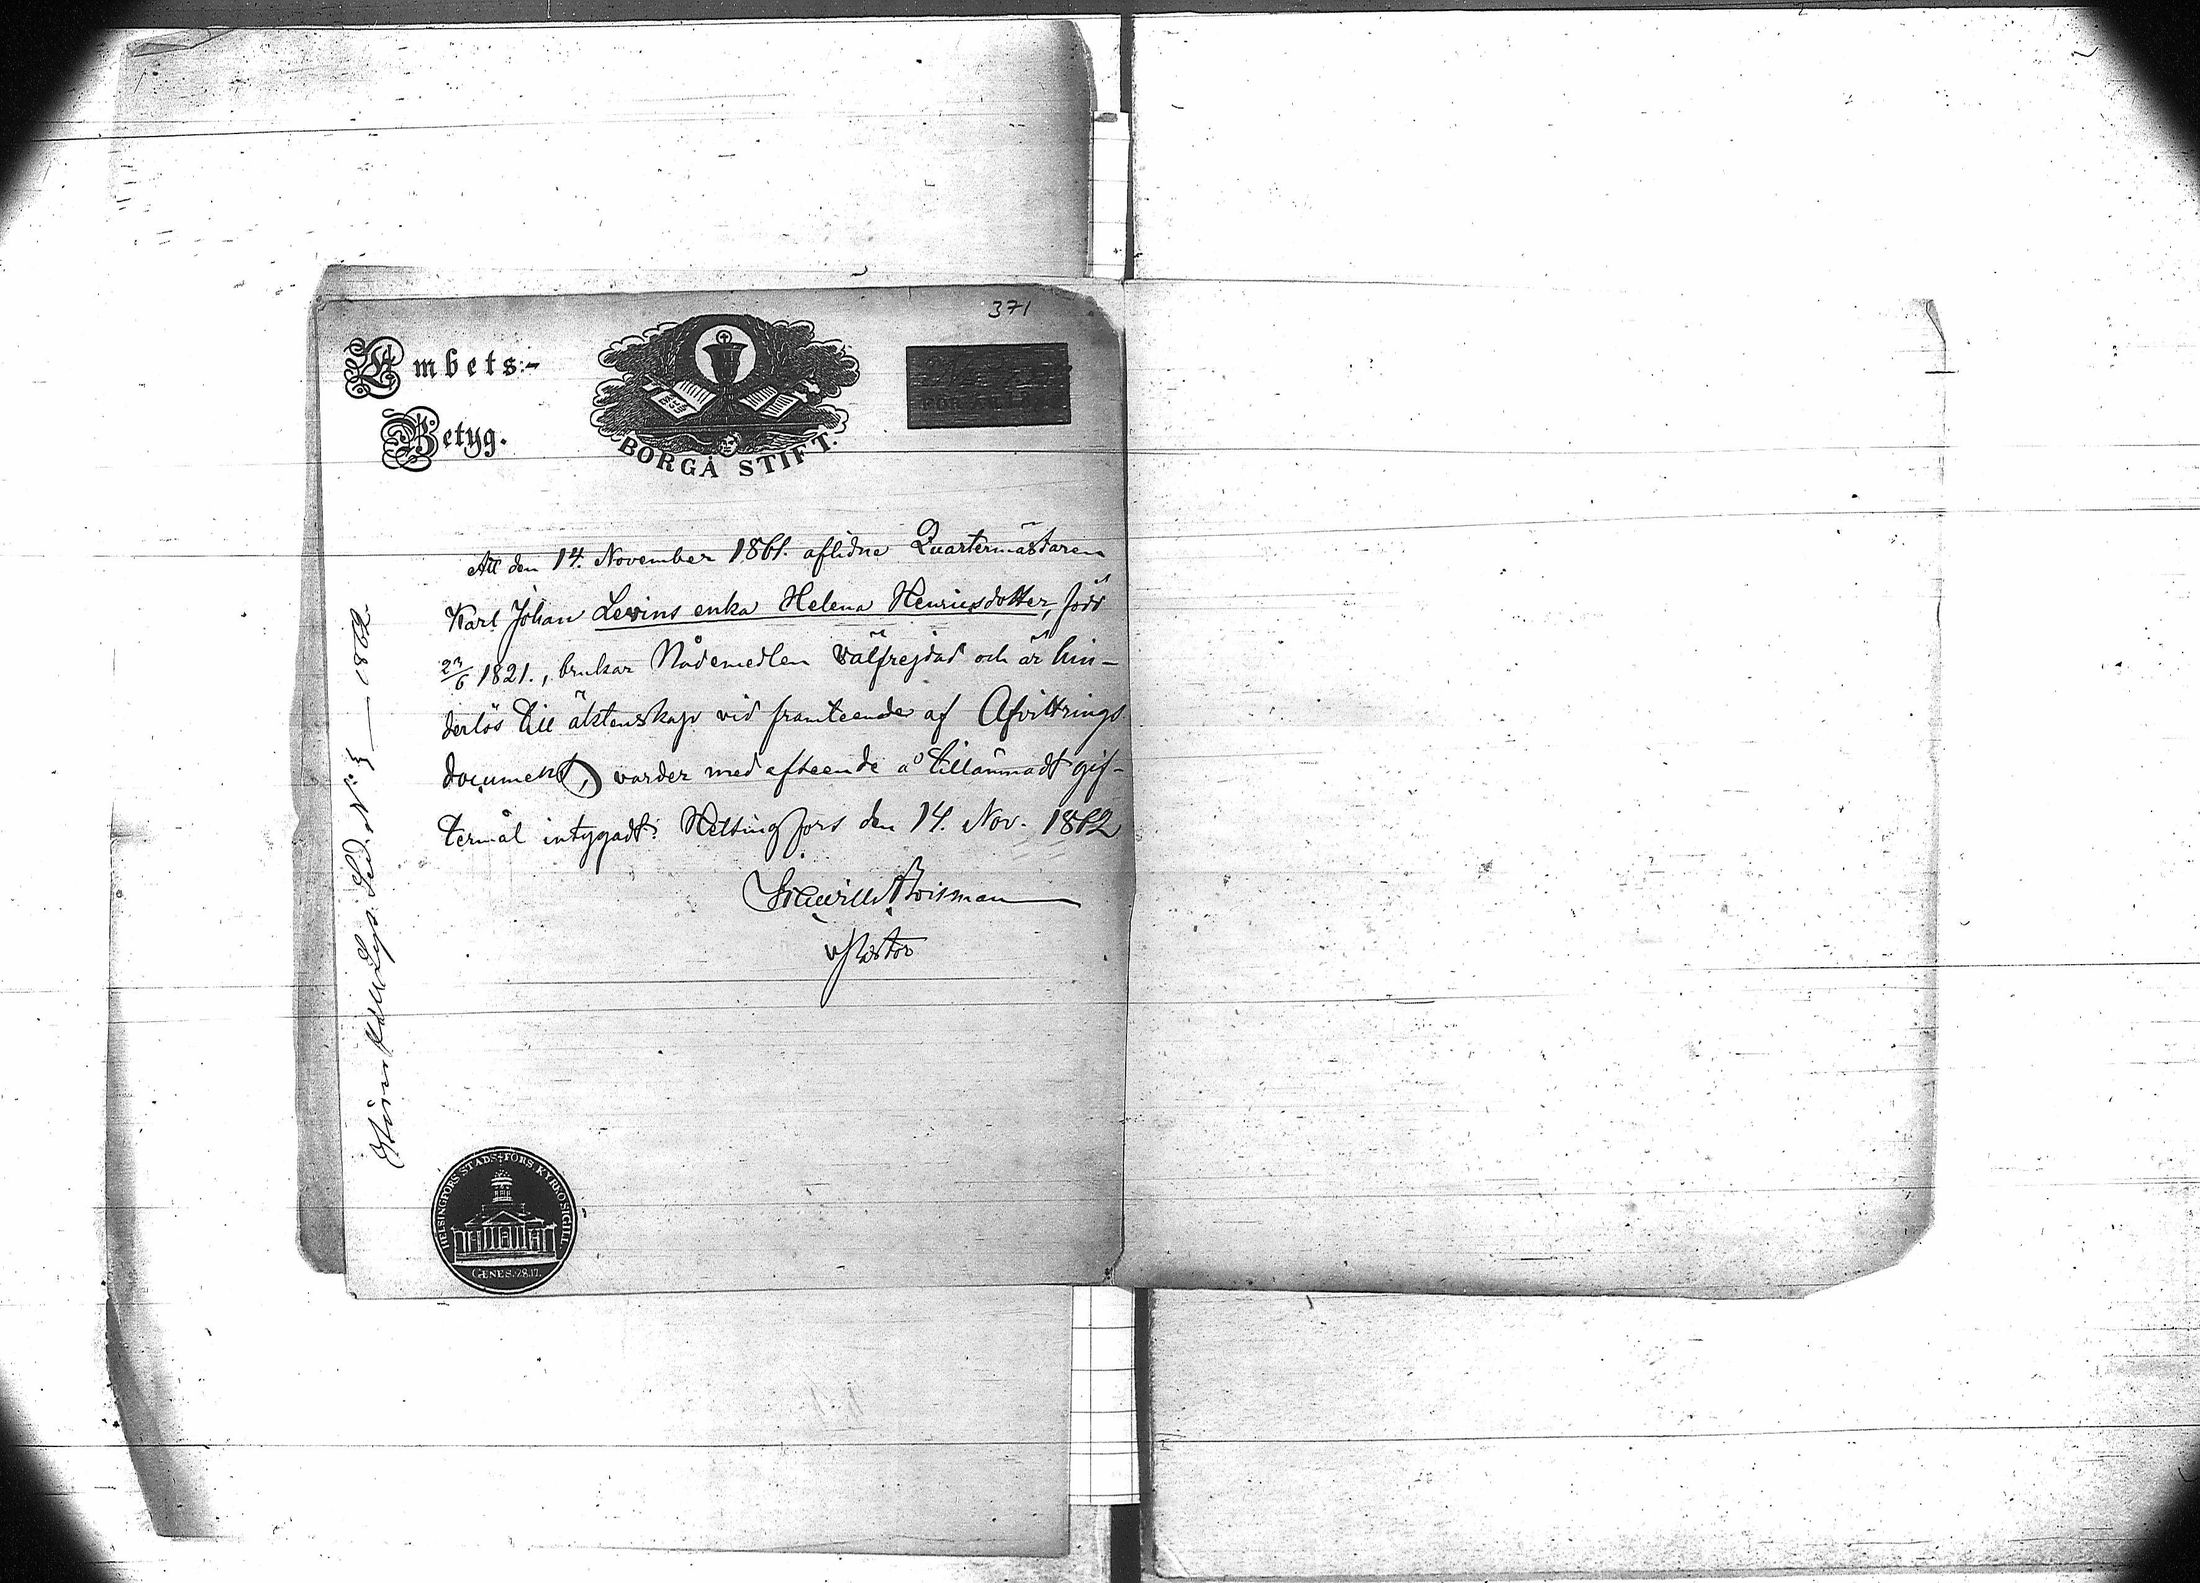 371
Embets:-
Betyg.
BORGÅ STIFT.
Att den 14. November 1861. aflidne Quartermästaren
Karl Johan Levins enka Helena Henricsdotter, född
1821., brukar Nådemedlen välfrejdad och är hin-
derlös till äktenskap vid framteende af Afvittrings
document, varder med afseende å tillämnadt gif-
termål intygadt: Helsingfors den 14. Nov. 1862
Boisman
v Pastor
1862
HELSINGFORS STADS FÖRS. KYRKO SIGILL
GENES. 28.17.